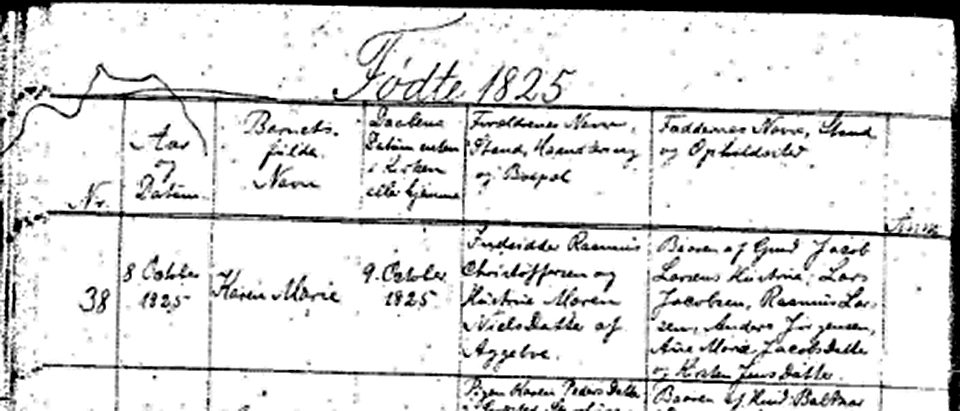 Fødte 1825
Nr.
Aar
og
Datum
Barnets
fulde
Navn
Daabens
Datum enten
i Kirken
eller hjemme
Forældrenes Navn,
Stand, Haandtering
og Bopæl
Faddernes Navn, Stand
og Opholdssted
38
8 October
1825
Karen Marie
9. October
1825
Indsidder Rasmus
Christoffersen og
Hustrue Maren
Niels Datter af
Aggebo.
Baaren af Gmd Jacob
Larsens Hustrue, Lars
Jacobsen, Rasmus Lar-
sen, Anders Jørgensen,
Ane Marie Jacobs Datter
og Kirsten Jens Datter.
Pigen Karen Peders Datter
Baaren af Hmd